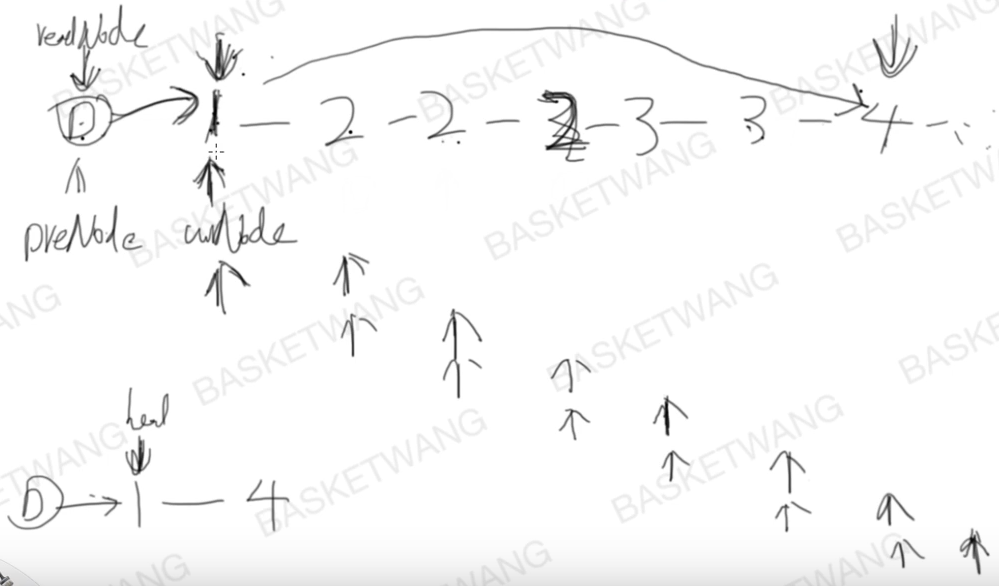 D 1 2 2 3 3 4
preNode curNode
head
D 1 4
BASKETWANG